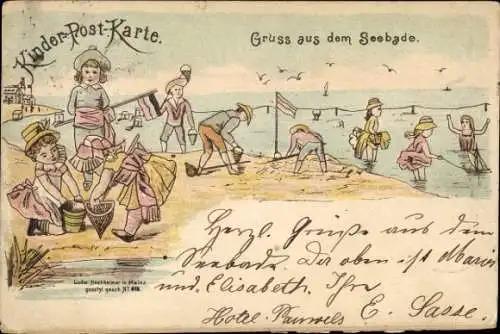 Kinder-Post-Karte.
Gruss aus dem Seebade.
Herzl. Grüße aus dem
Seebade. Da oben ist Marie
und Elisabeth. Ihr
Hotel E. Sasse.
Ludw. Hochheimer in Mainz
gesetzl. gesch. Nº